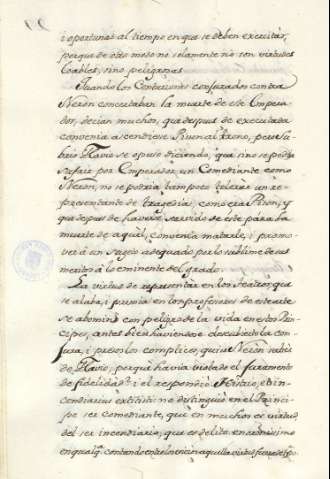 i oportunas al tiempo en que se deben executar,
porque de otro modo no solamente no son virtudes
loables, sino peligrosas.
Quando los Centuriones conjurados contra
Nerón concertaban la muerte de este Empera-
dor, decian muchos, que despues de executada
convenia ascendiese Pison al trono, pero Su-
brio Flavio se opuso diciendo, que si no se podia
sufrir por Emperador un Comediante como
Neron, no se podria tampoco tolerar un re-
presentante de tragedia, como era Pison, y
que despues de haverse servido de este para la
muerte de aquel, convenia matarle, i promo-
ver á un sugeto adequado por lo sublime de sus
meritos á lo eminente del grado.
La virtud de representar en los teatros, que
se alaba, i premia en los profesores de este arte
se abomina con peligro de la vida en el Prin-
cipe, antes bien haviendose descubierto la con-
jura, i presos los complices, quiso Nerón saber
de Flavio, porque havia violado el juramento
de fidelidad? i el respondió
incendiarius extitisti no distinguió en el Princi-
pe ser comediante, que en muchos es virtud,
del ser incendiario, que es delito enormisimo
en qualquiera